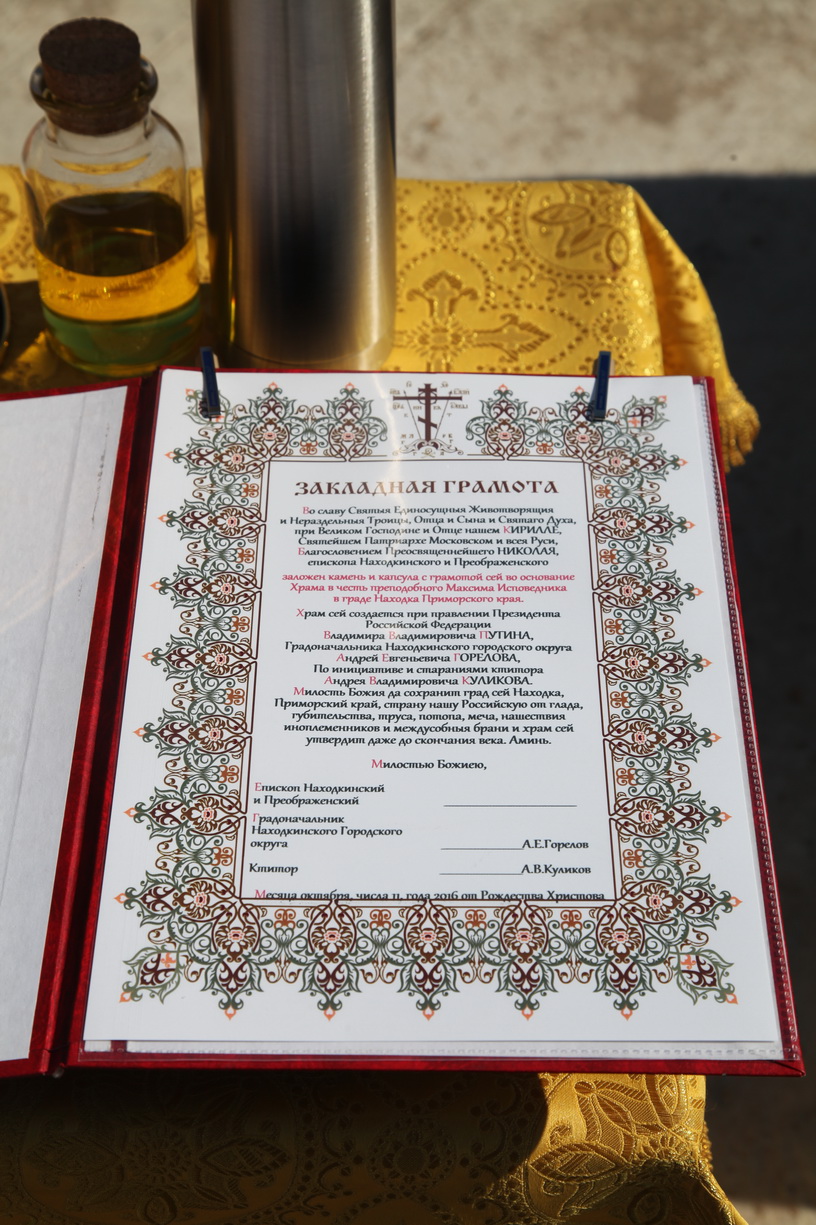 ЗАКЛАДНАЯ ГРАМОТА
Во славу Святыя Единосущныя Животворящия
и Нераздельныя Троицы, Отца и Сына и Святаго Духа,
при Великом Господине и Отце нашем КИРИЛЛЕ,
Святейшем Патриархе Московском и всея Руси,
Благословением Преосвященнейшего НИКОЛАЯ,
епископа Находкинского и Преображенского
заложен камень и капсула с грамотой сей во основание
Храма в честь преподобного Максима Исповедника
в граде Находка Приморского края.
Храм сей создается при правлении Президента
Российской Федерации
Владимира Владимировича ПУТИНА,
Градоначальника Находкинского городского округа
Андрей Евгеньевича ГОРЕЛОВА,
По инициативе и стараниями ктитора
Андрея Владимировича КУЛИКОВА.
Милость Божия да сохранит град сей Находка,
Приморский край, страну нашу Российскую от глада,
губительства, труса, потопа, меча, нашествия
иноплеменников и междусобныя брани и храм сей
утвердит даже до скончания века. Аминь.
Милостью Божиею,
Епископ Находкинский
и Преображенский
Градоначальник
Находкинского Городского
округа А.Е.Горелов
Ктитор А.В.Куликов
Месяца октября, числа 11, года 2016 от Рождества Христова